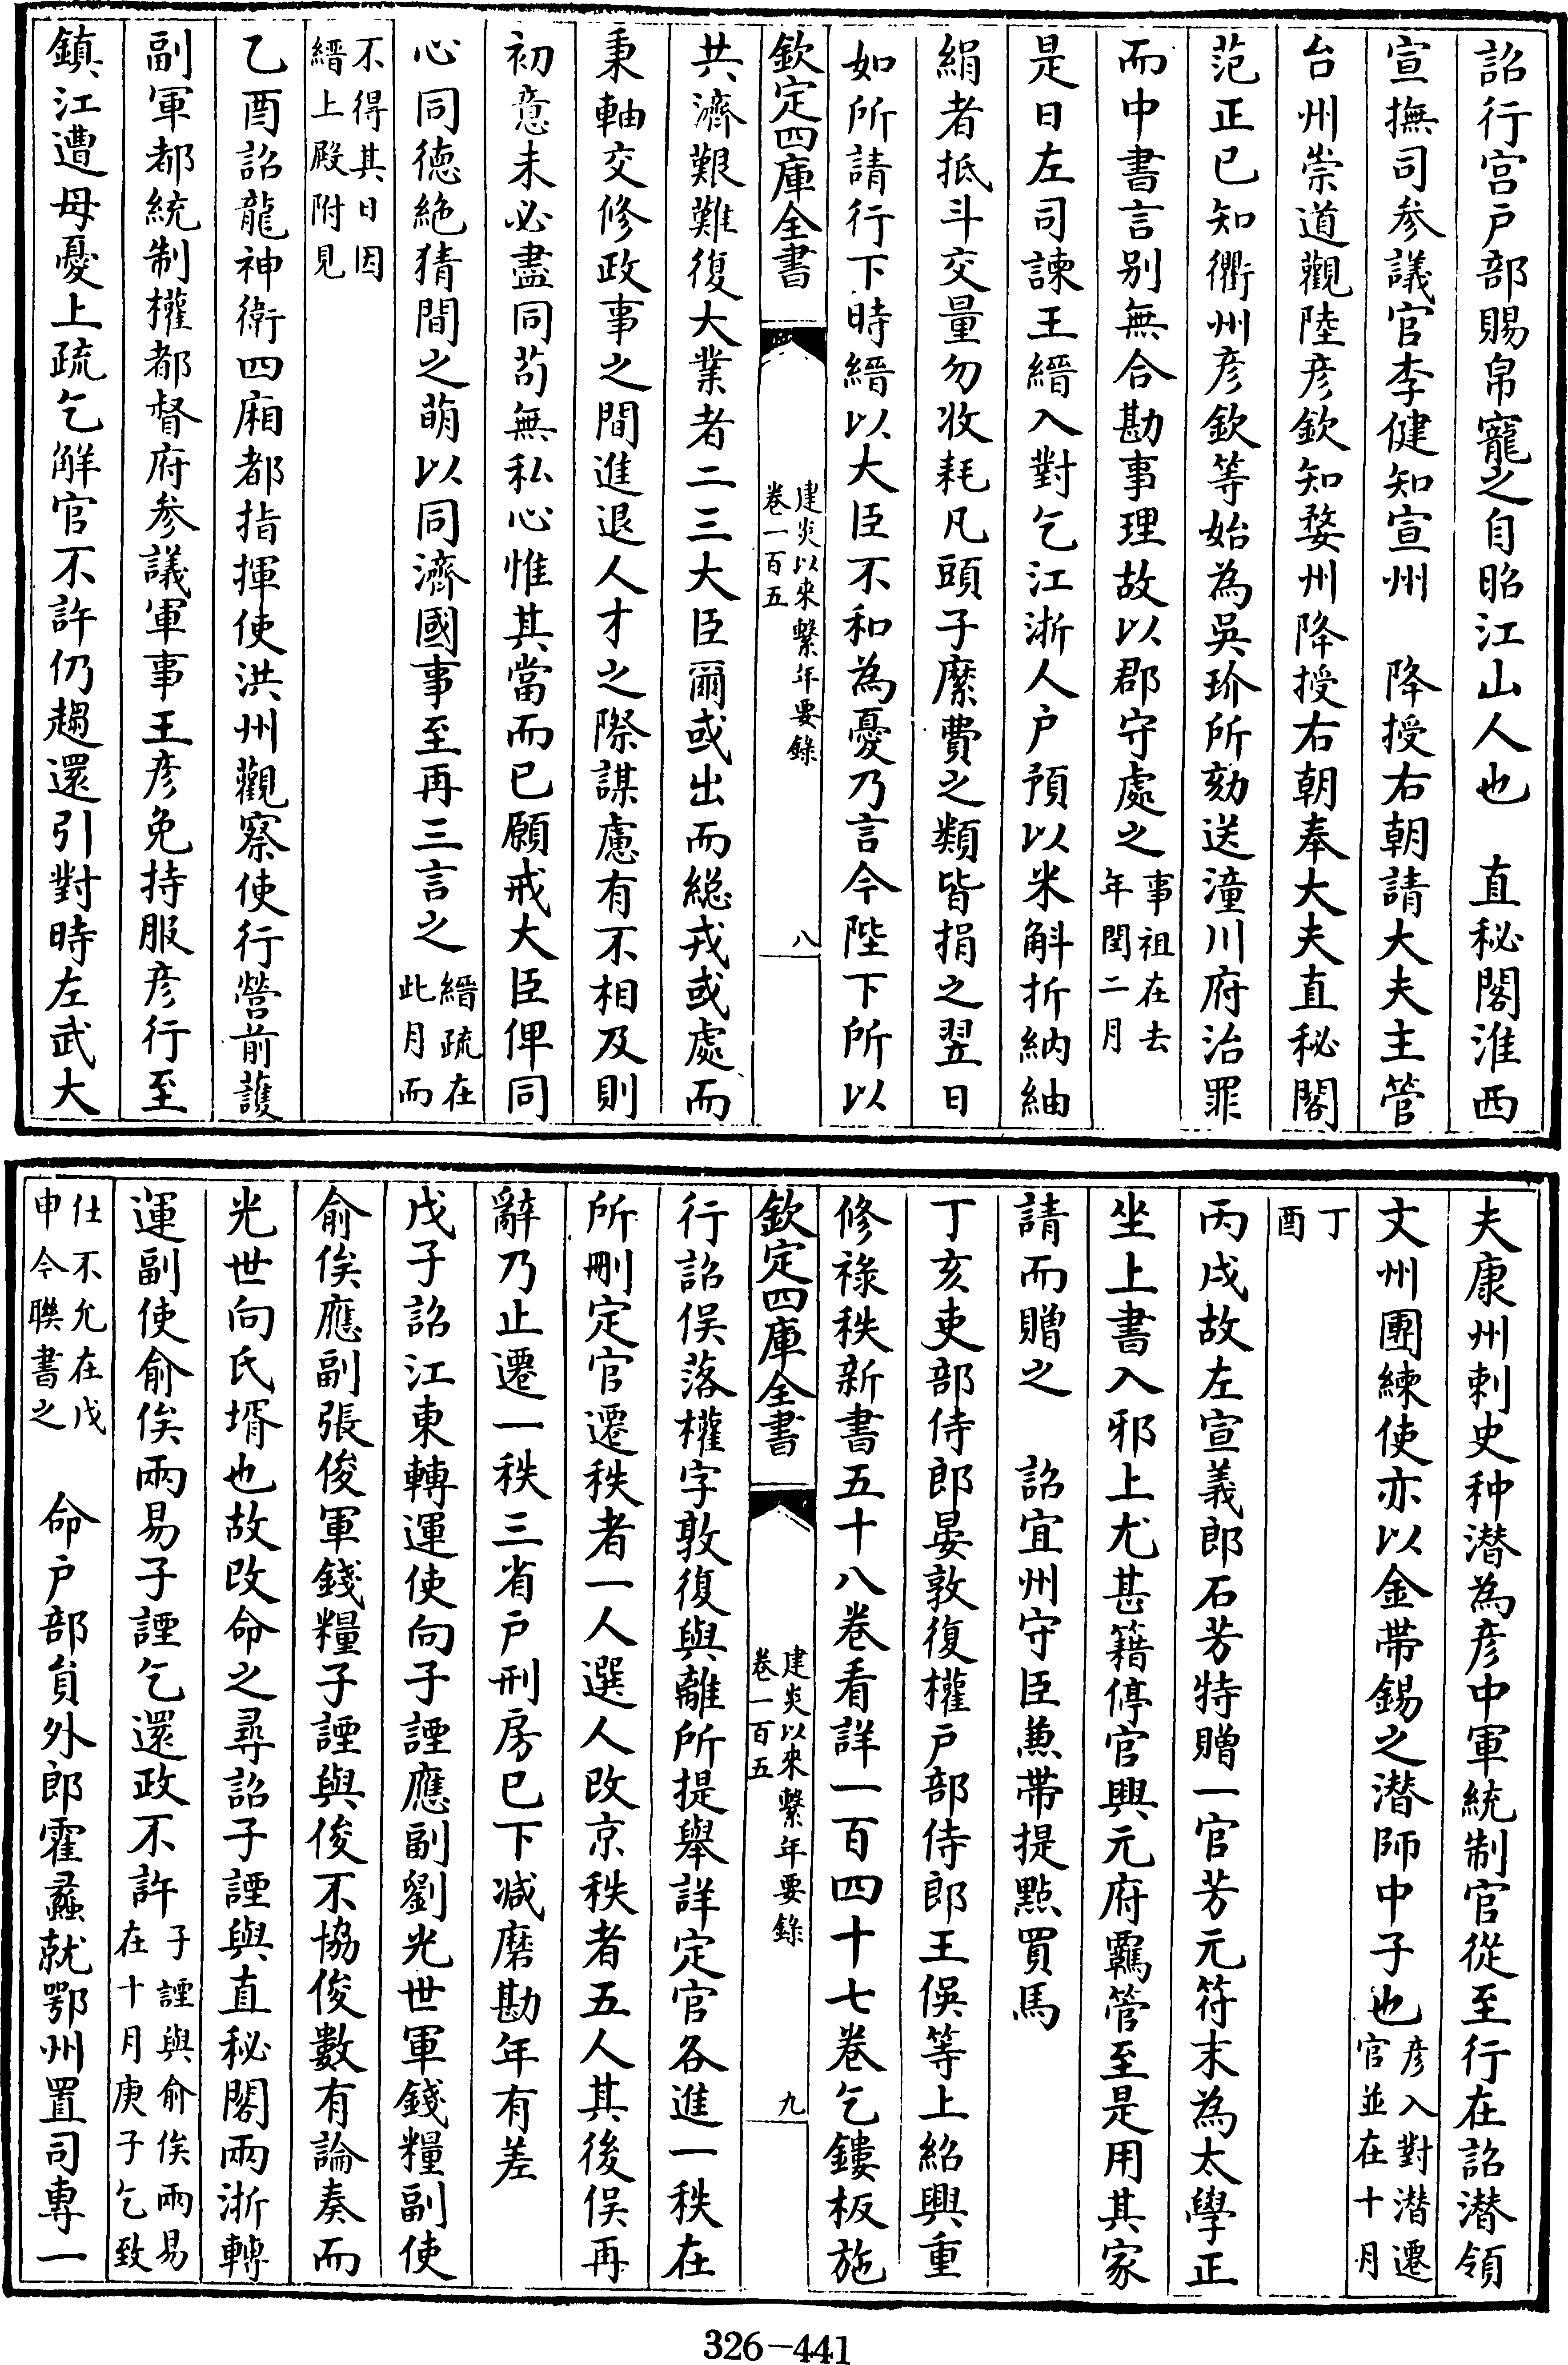 詔行宫户部賜帛寵之自昭江山人也　直秘閣淮西
宣撫司参議官李健知宣州　降授右朝請大夫主管
台州崇道觀陸彦欽知婺州降授右朝奉大夫直秘閣
范正已知衢州彦欽等始為吳玠所劾送潼川府治罪
而中書言别無合勘事理故以郡守處之事祖在去年閏二月
是日左司諫王縉入對乞江浙人户預以米斛折納紬
絹者抵斗交量勿收耗凡頭子縻費之類皆捐之翌日
如所請行下時縉以大臣不和為憂乃言今陛下所以
欽定四庫全書　建炎以來繫年要錄　卷一百五　八
共濟艱難復大業者二三大臣爾或出而緫戎或處而
秉軸交修政事之間進退人才之際謀慮有不相及則
初意未必盡同苟無私心惟其當而已願戒大臣俾同
心同德絶猜間之萌以同濟國事至再三言之縉疏在此月而
不得其日因縉上殿附見
乙酉詔龍神衛四厢都指揮使洪州觀察使行營前護
副軍都統制權都督府参議軍事王彦免持服彦行至
鎮江遭母憂上疏乞解官不許仍趨還引對時左武大
夫康州刺史种潜為彦中軍統制官從至行在詔潜領
文州團練使亦以金帶錫之潜師中子也彦入對潜遷官並在十月
丁酉
丙戌故左宣義郎石芳特贈一官芳元符末為太學正
坐上書入邪上尤甚籍停官興元府羈管至是用其家
請而贈之　詔宜州守臣兼帶提點買馬
丁亥吏部侍郎晏敦復權户部侍郎王俁等上紹興重
修祿秩新書五十八卷看詳一百四十七卷乞鏤板施
欽定四庫全書　建炎以來繫年要錄　卷一百五　九
行詔俁落權字敦復與離所提舉詳定官各進一秩在
所刪定官遷秩者一人選人改京秩者五人其後俁再
辭乃止遷一秩三省户刑房已下减磨勘年有差
戊子詔江東轉運使向子諲應副劉光世軍錢糧副使
俞俟應副張俊軍錢糧子諲與俊不協俊數有論奏而
光世向氏壻也故改命之尋詔子諲與直秘閣兩浙轉
運副使俞俟兩易子諲乞還政不許子諲與俞俟兩易在十月庚子乞致
仕不允在戊申今聯書之　命户部員外郎霍蠡就鄂州置司專一
326-441